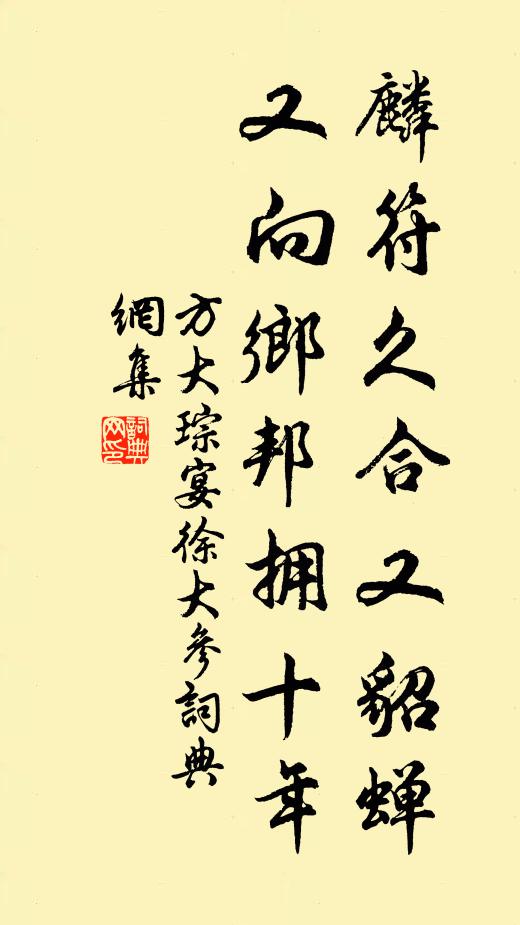 麟符久合又貂蝉
又向鄉邦拥十年
方大琮宴徐大參詞典
網集
詞典
网印